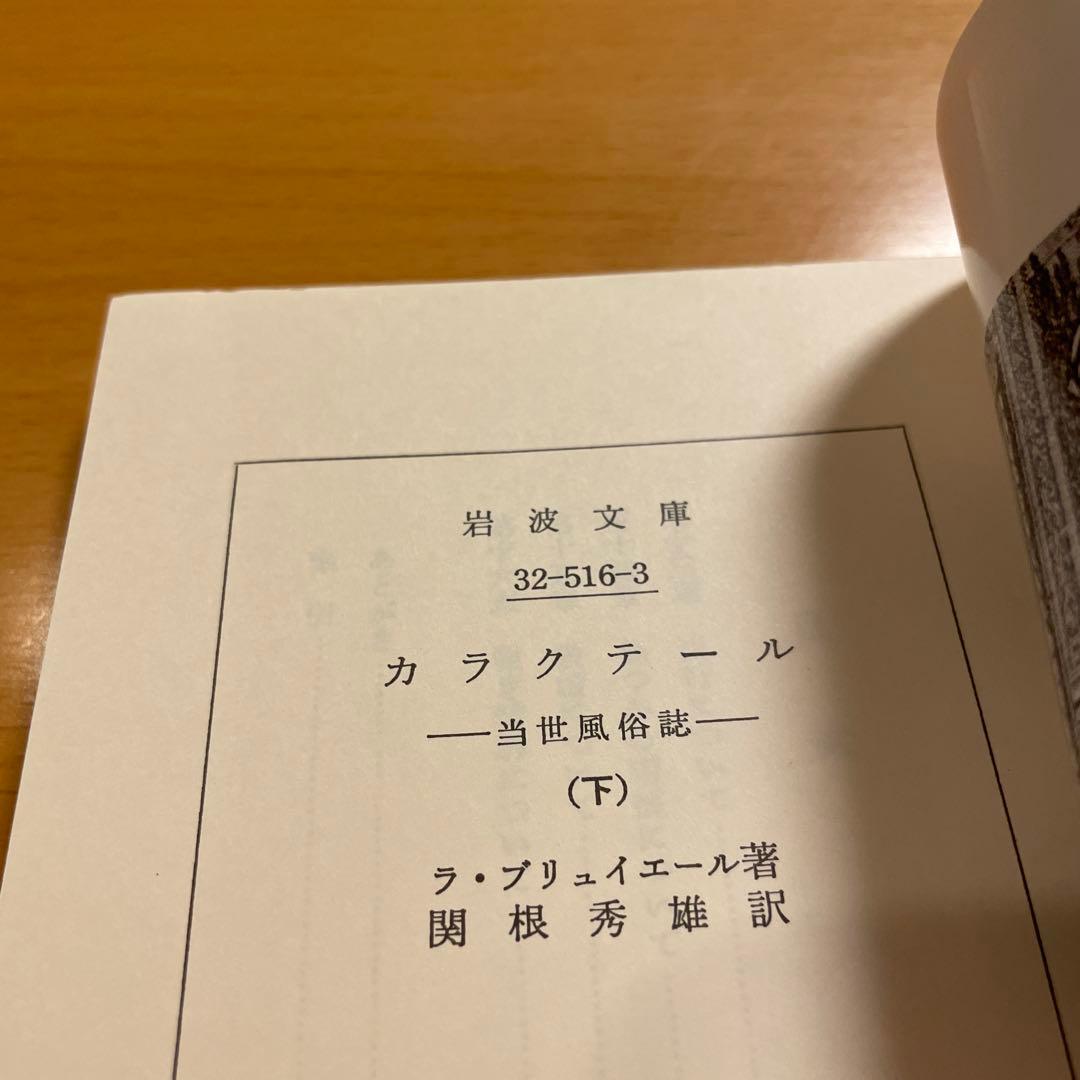 岩波文庫
32-516-3
カラクテール
―当世風俗誌―
(下)
ラ・ブリュイエール著
関根秀雄訳